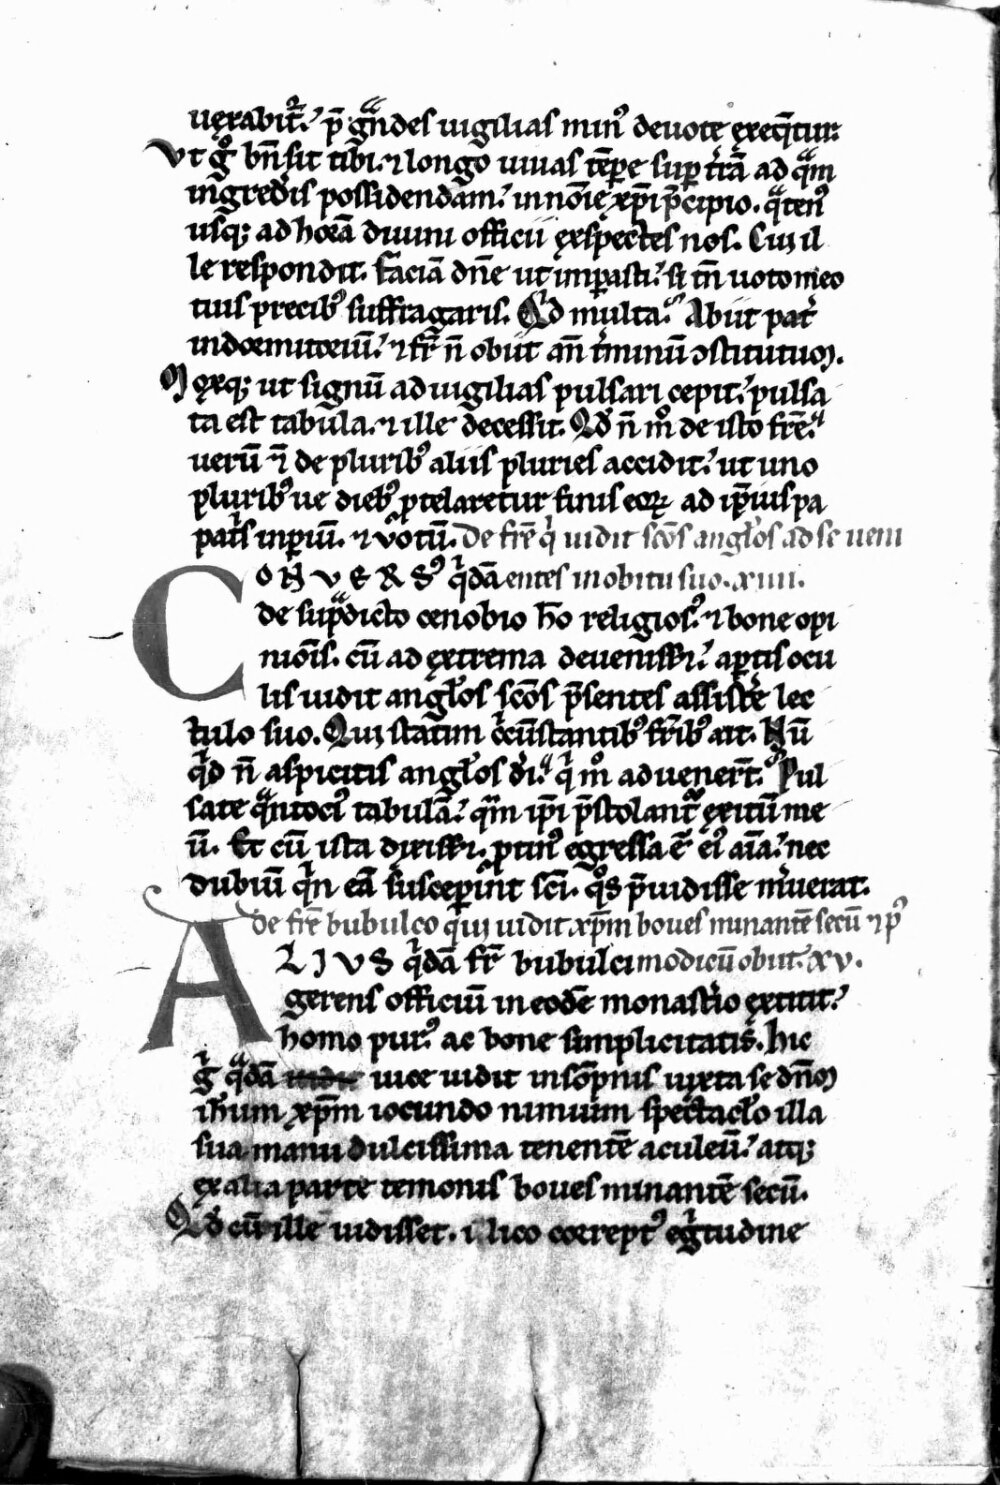 uęrabit᷑. p̄ gͣndes uigilias min᷒ deuote ęxeq̄ntur.
Vt gͦ bn̄ sit tibi. ⁊ longo uiuas tēpꝛe suꝑ t̄rā ad qͣm
ingredīs possidendam. in nōię xp̄i p̄cipio. qͣten᷒
usq; ad horā diuini officii ęxspectes nos. Cui il
le respondit. faciā dn̄e ut imꝑasti. si tn̄ uoto meo
tuis precib᷒ suffragaris. Qd multa. Abiit pat̄
in dormitoriū. ⁊ fr̄ n̄ obiit an̄ t̄minū ꝯstitutum.
Męxq; ut signū ad uigilias pulsari cepit. pulsa
ta est tabula. ⁊ ille decessit. Qd̄ n̄ mͦ de isto fr̄e.
uerū ⁊̄ de plurib᷒ aliis pluries accidit. ut uno
plurib᷒ ue dieb᷒ ꝓtelaretur finis eoꝝ ad ip̄ius pa
pat̄s inꝑiū. ⁊ votū. De fr̄e qͥ uidit scōs angl̄os ad se ueni
CONVERS᷒ qͥdā entes in obitu suo. xiiii.
de supͣdicto cenobio hō religios᷒. ⁊ bone opi
niōis. cū ad ęxtrema deuenisset. aꝑtis ocu
lis uidit angl̄os scōs p̄sentes assistēre lec
tulo suo. Qui statim cͥcūstantib᷒ fr̄ib᷒ ait. Nū
qͥd n̄ aspicitis angl̄os dī. qͥ mͦ aduener̄t. Pul
sate qͣntoci᷒ tabulā. qm̄ ip̄i p̄stolant᷑ ęxitū me
ū. Et cū ista dyxisset. ꝓtin᷒ egressa ē ei᷒ aīa. nec
dubiū qͥn eā susceꝑint scī. qͦs p̄uidisse m̄uerat.
De fr̄e bubulco qui uidit xp̄m boues minantē secū ⁊ p᷒
ALIVS qͥdā fr̄ bubulci modicū obiit. xv.
gerens officiū in eodē monast̄io ęxtitit.
homo pur᷒ ac bone simplicitatis. hic
gͥ qͣdā uice uidit in sōpnis iuxta se dn̄m
ih̄um xp̄m iocundo nimium spectacl̄o illa
sua manu dulcissima tenentē aculeū. atq;
ęx alia parte temonis boues minantē secū.
Qd̄ cū ille uidisset. ilico corrept᷒ egͥtudine